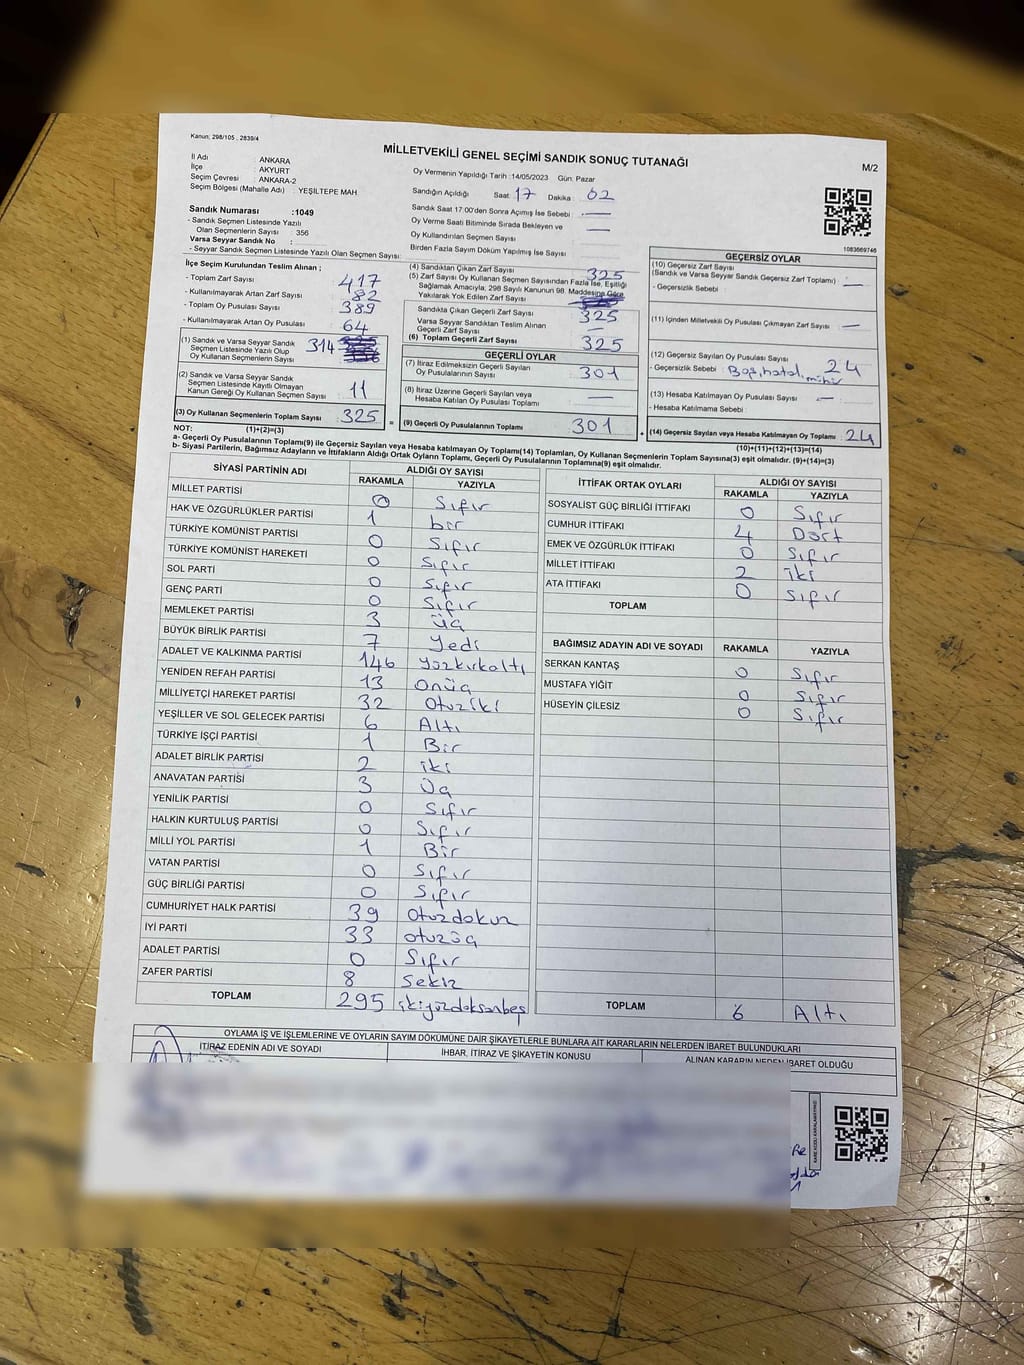 Kanun; 298/105 , 2839/4
MİLLETVEKİLİ GENEL SEÇİMİ SANDIK SONUÇ TUTANAĞI
M/2
İl Adı : ANKARA
İlçe : AKYURT
Seçim Çevresi : ANKARA-2
Seçim Bölgesi (Mahalle Adı) : YEŞİLTEPE MAH.
Oy Vermenin Yapıldığı Tarih :14/05/2023 Gün: Pazar
Sandığın Açıldığı Saat: 17 Dakika : 02
Sandık Saat 17.00'den Sonra Açımış İse Sebebi : —
Oy Verme Saati Bitiminde Sırada Bekleyen ve
Oy Kullandırılan Seçmen Sayısı : —
Birden Fazla Sayım Döküm Yapılmış İse Sayısı : —
Sandık Numarası :1049
- Sandık Seçmen Listesinde Yazılı
Olan Seçmenlerin Sayısı : 356
Varsa Seyyar Sandık No :
- Seyyar Sandık Seçmen Listesinde Yazılı Olan Seçmen Sayısı:
1083669746
İlçe Seçim Kurulundan Teslim Alınan ;
- Toplam Zarf Sayısı : 417
- Kullanılmayarak Artan Zarf Sayısı : 82
- Toplam Oy Pusulası Sayısı : 389
- Kullanılmayarak Artan Oy Pusulası : 64
(1) Sandık ve Varsa Seyyar Sandık
Seçmen Listesinde Yazılı Olup
Oy Kullanan Seçmenlerin Sayısı : 314
(2) Sandık ve Varsa Seyyar Sandık
Seçmen Listesinde Kayıtlı Olmayan
Kanun Gereği Oy Kullanan Seçmen Sayısı : 11
(3) Oy Kullanan Seçmenlerin Toplam Sayısı : 325 =
(4) Sandıktan Çıkan Zarf Sayısı : 325
(5) Zarf Sayısı Oy Kullanan Seçmen Sayısından Fazla İse, Eşitliği
Sağlamak Amacıyla, 298 Sayılı Kanunun 98. Maddesine Göre
Yakılarak Yok Edilen Zarf Sayısı :
Sandıkta Çıkan Geçerli Zarf Sayısı : 325
Varsa Seyyar Sandıktan Teslim Alınan
Geçerli Zarf Sayısı : —
(6) Toplam Geçerli Zarf Sayısı : 325
GEÇERLİ OYLAR
(7) İtiraz Edilmeksizin Geçerli Sayılan
Oy Pusulalarının Sayısı : 301
(8) İtiraz Üzerine Geçerli Sayılan veya
Hesaba Katılan Oy Pusulası Toplamı : —
(9) Geçerli Oy Pusulalarının Toplamı : 301 +
GEÇERSİZ OYLAR
(10) Geçersiz Zarf Sayısı
(Sandık ve Varsa Seyyar Sandık Geçersiz Zarf Toplamı) : —
- Geçersizlik Sebebi :
(11) İçinden Milletvekili Oy Pusulası Çıkmayan Zarf Sayısı : —
(12) Geçersiz Sayılan Oy Pusulası Sayısı : 24
- Geçersizlik Sebebi : Boş, hatalı, mühür
(13) Hesaba Katılmayan Oy Pusulası Sayısı : —
- Hesaba Katılmama Sebebi :
(14) Geçersiz Sayılan veya Hesaba Katılmayan Oy Toplamı : 24
NOT: (1)+(2)=(3) (10)+(11)+(12)+(13)=(14)
a- Geçerli Oy Pusulalarının Toplamı(9) ile Geçersiz Sayılan veya Hesaba katılmayan Oy Toplamı(14) Toplamları, Oy Kullanan Seçmenlerin Toplam Sayısına(3) eşit olmalıdır. (9)+(14)=(3)
b- Siyasi Partilerin, Bağımsız Adayların ve İttifakların Aldığı Ortak Oyların Toplamı, Geçerli Oy Pusulalarının Toplamına(9) eşit olmalıdır.
SİYASİ PARTİNİN ADI ALDIĞI OY SAYISI
RAKAMLA YAZIYLA
MİLLET PARTİSİ 0 Sıfır
HAK VE ÖZGÜRLÜKLER PARTİSİ 1 bir
TÜRKİYE KOMÜNİST PARTİSİ 0 Sıfır
TÜRKİYE KOMÜNİST HAREKETİ 0 Sıfır
SOL PARTİ 0 Sıfır
GENÇ PARTİ 0 Sıfır
MEMLEKET PARTİSİ 3 üç
BÜYÜK BİRLİK PARTİSİ 7 Yedi
ADALET VE KALKINMA PARTİSİ 146 yüzkırkaltı
YENİDEN REFAH PARTİSİ 13 onüç
MİLLİYETÇİ HAREKET PARTİSİ 32 Otuziki
YEŞİLLER VE SOL GELECEK PARTİSİ 6 Altı
TÜRKİYE İŞÇİ PARTİSİ 1 Bir
ADALET BİRLİK PARTİSİ 2 iki
ANAVATAN PARTİSİ 3 Üç
YENİLİK PARTİSİ 0 Sıfır
HALKIN KURTULUŞ PARTİSİ 0 Sıfır
MİLLİ YOL PARTİSİ 1 Bir
VATAN PARTİSİ 0 Sıfır
GÜÇ BİRLİĞİ PARTİSİ 0 Sıfır
CUMHURİYET HALK PARTİSİ 39 otuzdokuz
İYİ PARTİ 33 otuzüç
ADALET PARTİSİ 0 Sıfır
ZAFER PARTİSİ 8 Sekiz
TOPLAM 295 ikiyüzdoksanbeş
İTTİFAK ORTAK OYLARI ALDIĞI OY SAYISI
RAKAMLA YAZIYLA
SOSYALİST GÜÇ BİRLİĞİ İTTİFAKI 0 Sıfır
CUMHUR İTTİFAKI 4 Dört
EMEK VE ÖZGÜRLÜK İTTİFAKI 0 Sıfır
MİLLET İTTİFAKI 2 iki
ATA İTTİFAKI 0 Sıfır
TOPLAM
BAĞIMSIZ ADAYIN ADI VE SOYADI RAKAMLA YAZIYLA
SERKAN KANTAŞ 0 Sıfır
MUSTAFA YİĞİT 0 Sıfır
HÜSEYİN ÇİLESİZ 0 Sıfır
TOPLAM 6 Altı
OYLAMA İŞ VE İŞLEMLERİNE VE OYLARIN SAYIM DÖKÜMÜNE DAİR ŞİKAYETLERLE BUNLARA AİT KARARLARIN NELERDEN İBARET BULUNDUKLARI
İTİRAZ EDENİN ADI VE SOYADI İHBAR, İTİRAZ VE ŞİKAYETİN KONUSU ALINAN KARARIN NEDEN İBARET OLDUĞU